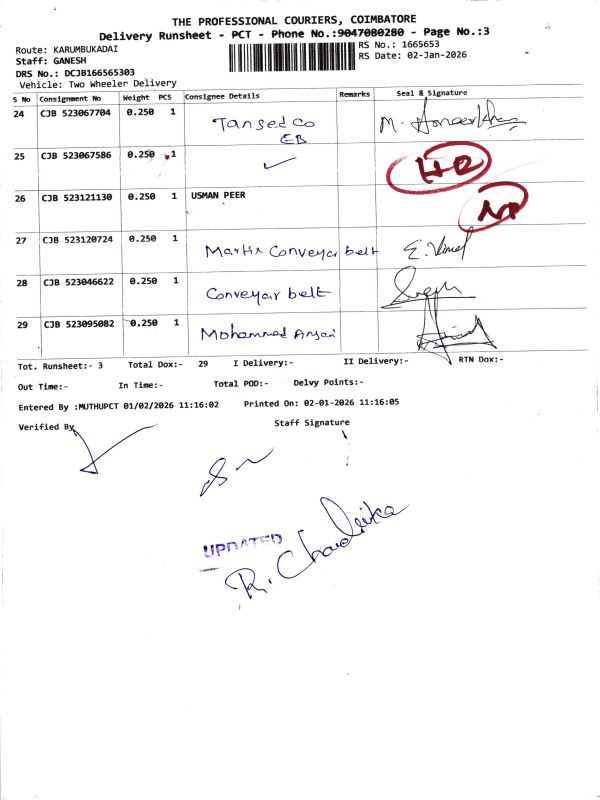 THE PROFESSIONAL COURIERS, COIMBATORE
Delivery Runsheet - PCT - Phone No.:9047080280 - Page No.:3
Route: KARUMBUKADAI
RS No.: 1665653
Staff: GANESH
RS Date: 02-Jan-2026
DRS No.: DCJB166565303
Vehicle: Two Wheeler Delivery
S No Consignment No Weight PCS Consignee Details Remarks Seal & Signature
24 CJB 523067704 0.250 1 Tansedco
EB
25 CJB 523067586 0.250 1 ✓
26 CJB 523121130 0.250 1 USMAN PEER
27 CJB 523120724 0.250 1 Martin Conveyar belt
28 CJB 523046622 0.250 1 Conveyar belt
29 CJB 523095082 0.250 1 Mohammed Ansari
Tot. Runsheet:- 3 Total Dox:- 29 I Delivery:- II Delivery:- RTN Dox:-
Out Time:- In Time:- Total POD:- Delvy Points:-
Entered By :MUTHUPCT 01/02/2026 11:16:02 Printed On: 02-01-2026 11:16:05
Verified By
Staff Signature
UPDATED